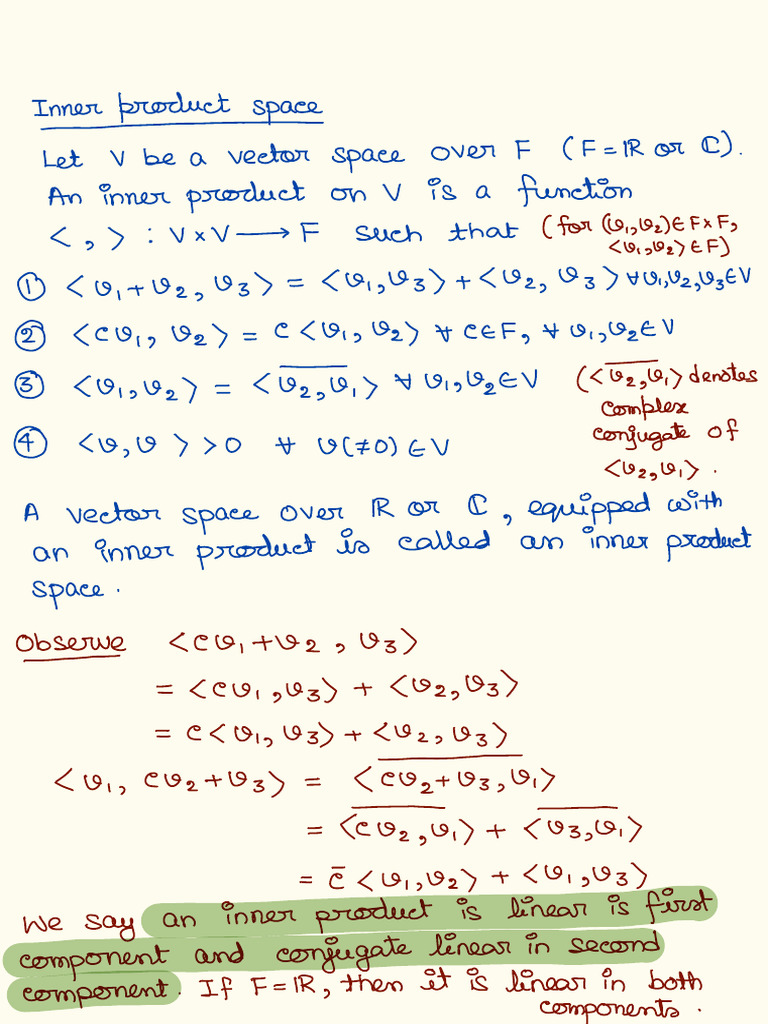 Inner product space
Let V be a vector space over F (F = ℝ or ℂ).
An inner product on V is a function
< , > : V × V ⟶ F such that (for (v₁,v₂) ∈ F×F,
<v₁,v₂> ∈ F)
① <v₁+v₂, v₃> = <v₁,v₃> + <v₂, v₃> ∀ v₁,v₂,v₃ ∈ V
② <cv₁, v₂> = c <v₁, v₂> ∀ c∈F, ∀ v₁,v₂ ∈ V
③ <v₁,v₂> = <v̅₂̅,̅v̅₁̅> ∀ v₁,v₂ ∈ V (<v̅₂̅,̅v̅₁̅> denotes
complex
conjugate of
<v₂,v₁>.
④ <v,v> > 0 ∀ v(≠0) ∈ V
A vector space over ℝ or ℂ, equipped with
an inner product is called an inner product
space.
Observe <cv₁+v₂, v₃>
= <cv₁,v₃> + <v₂,v₃>
= c<v₁,v₃> + <v₂,v₃>
<v₁, cv₂+v₃> = <c̅v̅₂̅+̅v̅₃̅,̅v̅₁̅>
= <c̅v̅₂̅,̅v̅₁̅> + <v̅₃̅,̅v̅₁̅>
= c̅ <v₁,v₂> + <v₁,v₃>
We say an inner product is linear is first
component and conjugate linear in second
component. If F = ℝ, then it is linear in both
components.